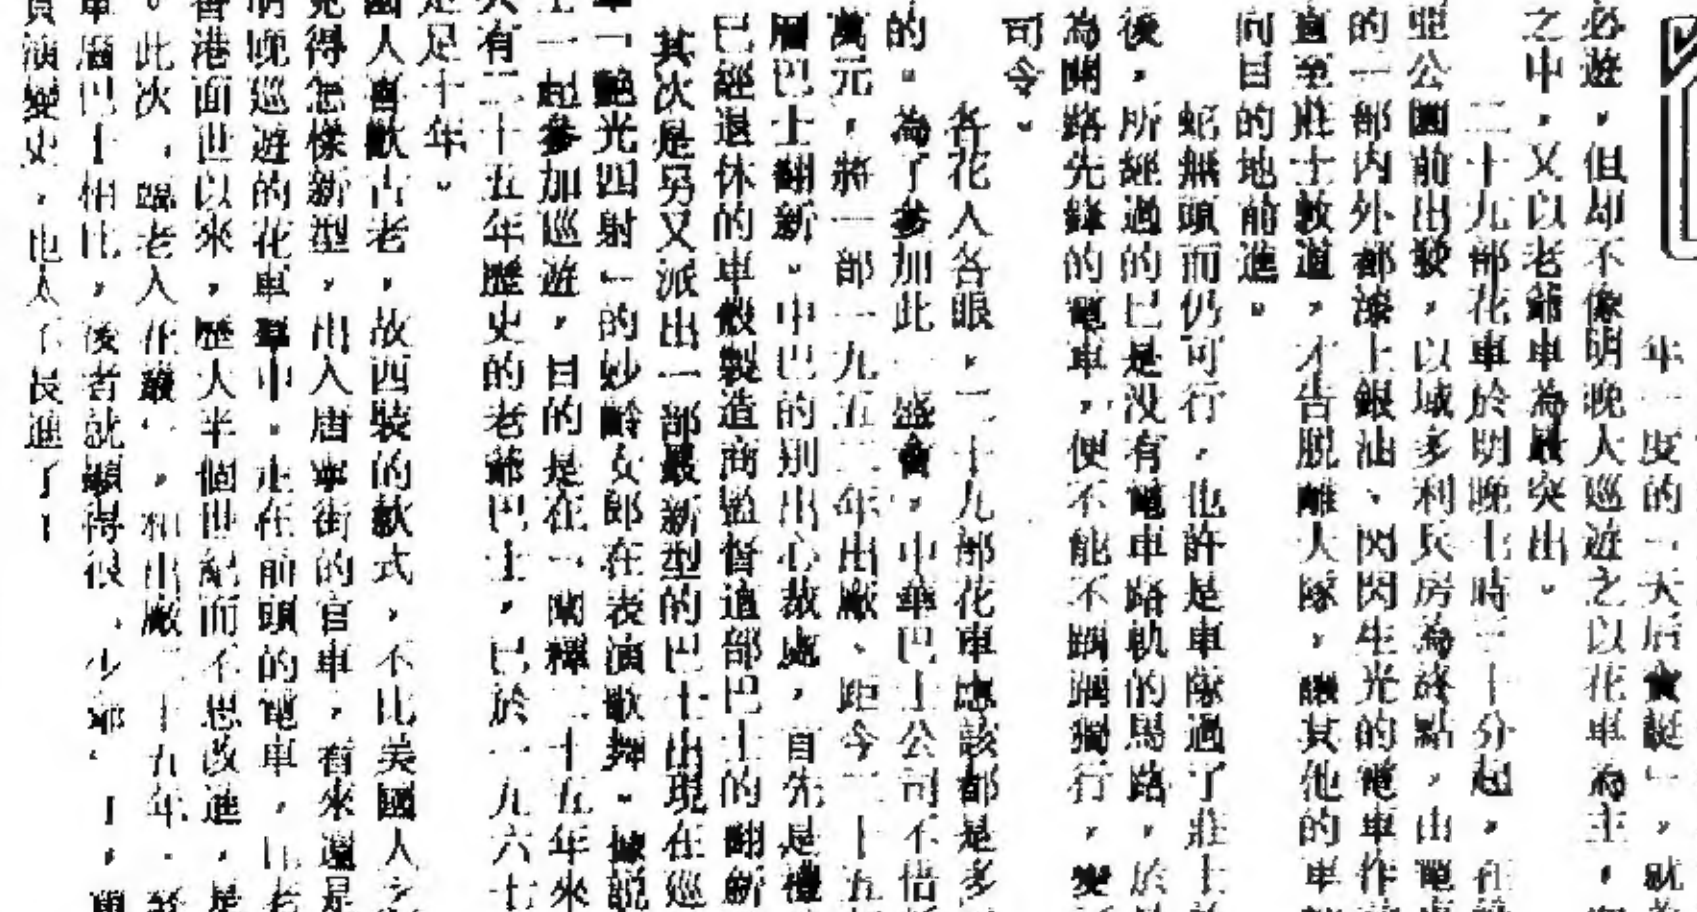 年一度的「天后會艇」,就
必遊,但却不像明晚大巡遊之以花車為主,
之中,又以老爺車為最突出。
二十九部花車於明晚七時三十分起,在
亞公園前出發,以域多利兵房為終點,由電
的一部內外都漆上銀油、閃閃生光的電車作
直至莊士敦道,才告脫離大隊,讓其他的車
向目的地前進。
蛇無頭而仍可行,也許是車隊過了莊士
後,所經過的已是沒有電車路軌的馬路,於
為開路先鋒的電車,便不能不踽踽獨行,變
司令。
各花入各眼,二十九部花車應該都是多
的。為了參加此一盛會,中華巴士公司不惜
萬元,將一部一九五二年出廠、距今二十五
層巴士翻新。中巴的別出心裁處,首先是
已經退休的車般製造商監督這部巴士的翻新
其次是另又派出一部最新型的巴士出現在巡
「艷光四射」的妙齡女郎在表演歌舞。據説
一起參加巡遊,目的是在「闡釋二十五年來
有二十五年歷史的老爺巴士,已於一九六七
足足十年。
國人喜歡古老,故西裝的款式,不比美國人之
得怎樣新型,出入唐寧街的官車,看來還是
明晚巡遊的花車車中,走在前頭的電車,
香港面世以來,歷大半個世紀而不思改進,是
。此次,「老人花叢」,和出廠二十五年,
車層巴士相比,後者就顯得很「少爺」!,
演變史,也太了長進了!